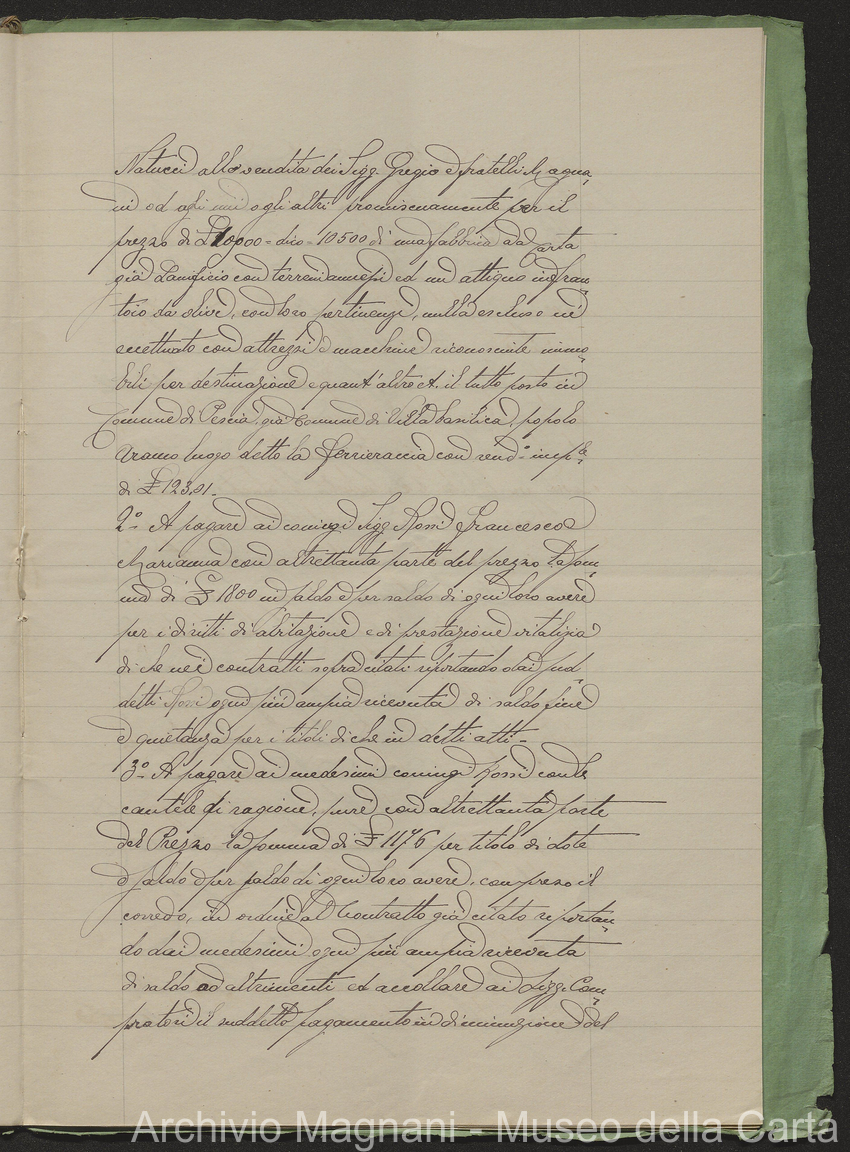 Natucci alla vendita dei Sigg. Gregio e fratelli Magna=
ni od agli uni o gli altri promiscuamente per il
prezzo di £ 10000 = dico = 10500 di una fabbrica da Carta
già Lanificio con terreni annessi ed un attiguo infran=
toio da olive, con loro pertinenze, nulla escluso nè
eccettuato con attrezzi e macchine riconosciute immo=
bili per destinazione e quant'altro et. il tutto posto in
Comune di Pescia, già Comune di Villa basilica, popolo
luogo detto la Ferrieraccia con rend.ª imp.le
di £ 123,01.
2º A pagare ai coniugi Sigg. Rossi Francesco e
Marianna con altrettanta parte del prezzo la som=
ma di £ 1800 in saldo e per saldo di ogni loro avere
per i diritti di abitazione e di prestazione vitalizia
di che nei contratti sopra citati riportando dai sud=
detti Rossi ogni più ampia ricevuta di saldo fine
e quietanza per i titoli di che in detti atti =
3º A pagare ai medesimi coniugi Rossi con le
cautele di ragione, pure con altrettanta parte
del Prezzo la somma di £ 1176 per titolo di dote
a saldo e per saldo di ogni loro avere, compreso il
corredo, in ordine al Contratto già citato riportan=
do dai medesimi ogni più ampia ricevuta
di saldo od altrimenti et accollare ai Sigg. Com=
pratori il suddetto pagamento in diminuzione del
Archivio Magnani - Museo della Carta